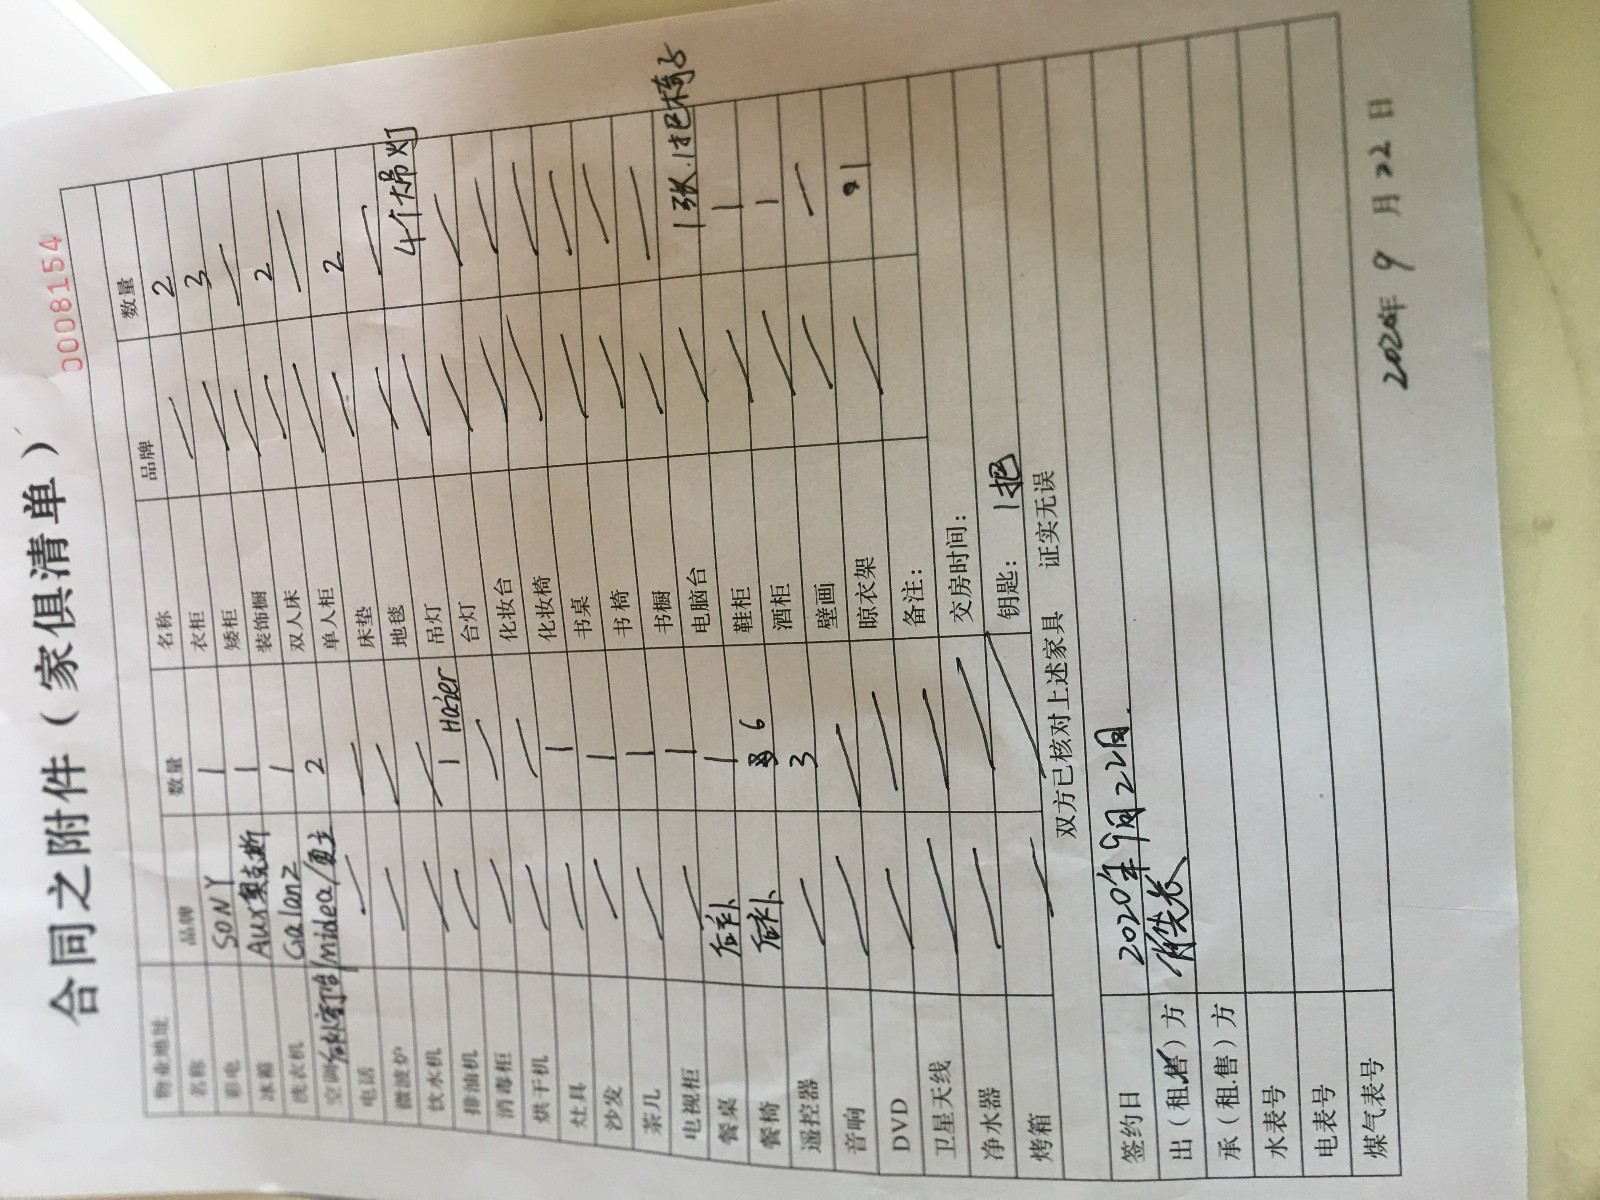 0008154
合同之附件（家俱清单）
物业地址
名称 品牌 数量 名称 品牌 数量
彩电 SONY 1 衣柜 2
冰箱 AUX奥克斯 1 矮柜 3
洗衣机 Galanz 1 装饰橱
空调 Midea/ 2 双人床 2
电话 单人柜
微波炉 床垫 2
饮水机 地毯
排油机 1 Haier 吊灯 4个大吊灯
消毒柜 台灯
烘干机 化妆台
灶具 1 化妆椅
沙发 1 书桌
茶几 1 书椅
电视柜 1 书橱
餐桌 后补 1 电脑台 1张.1把椅子
餐椅 后补 6 鞋柜 1
遥控器 3 酒柜 1
音响 壁画
DVD 晾衣架 1
卫星天线 备注：
净水器 交房时间：
烤箱 钥匙： 1把
双方已核对上述家具 证实无误
签约日 2020年9月22日.
出（租.售）方
承（租.售）方
水表号
电表号
煤气表号
2020年 9 月 22 日